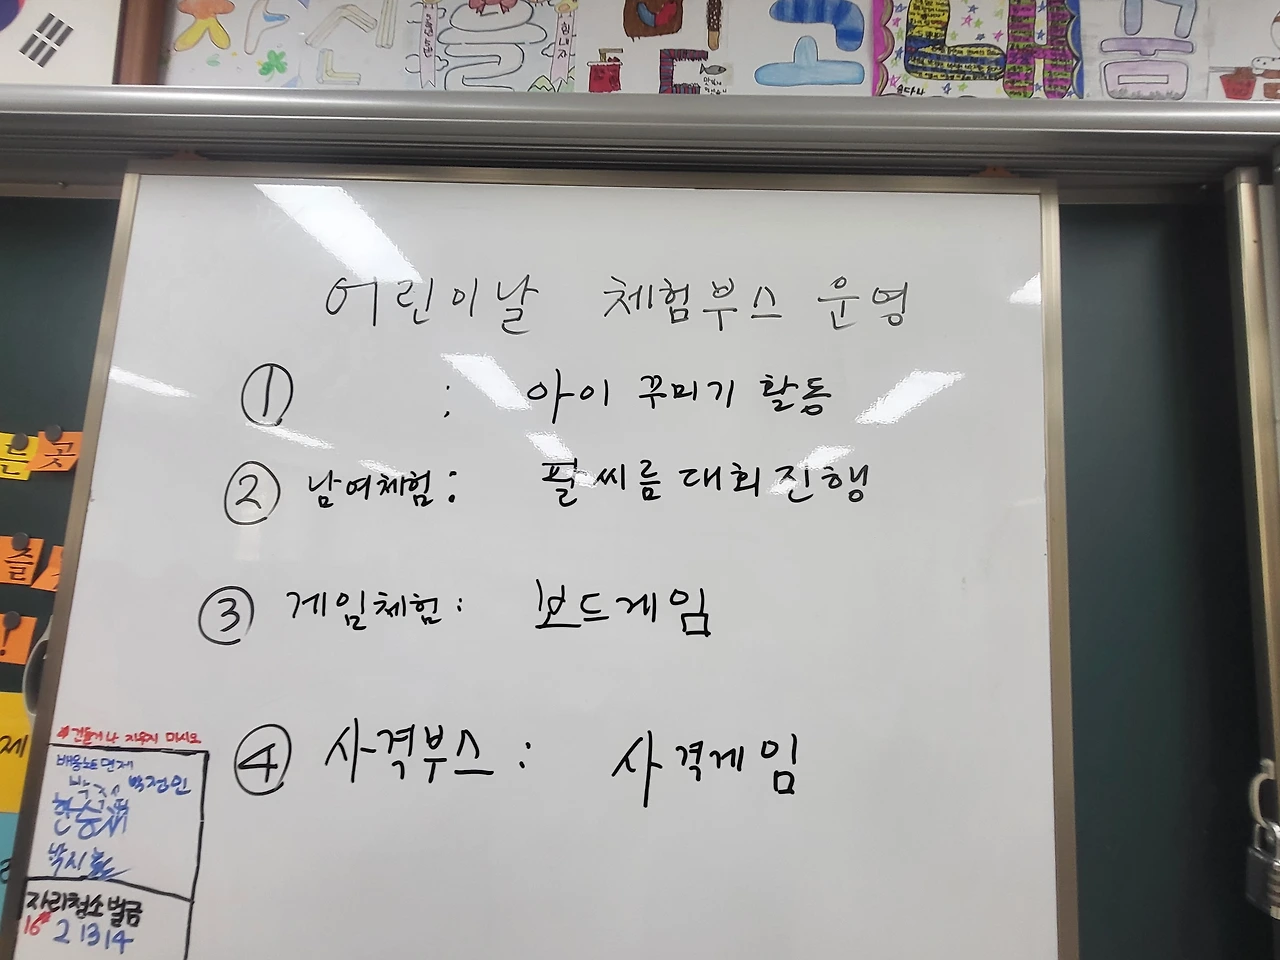 힘내자
어린이날 체험부스 운영
① : 아이 꾸미기 활동
② 남여체험: 필씨름대회진행
③ 게임체험: 보드게임
④ 사격부스: 사격게임
른 곳
즐
!
제
건들거나 지우지 마시오
배움노트면제
박정인
자리청소벌금
16 2 13 14